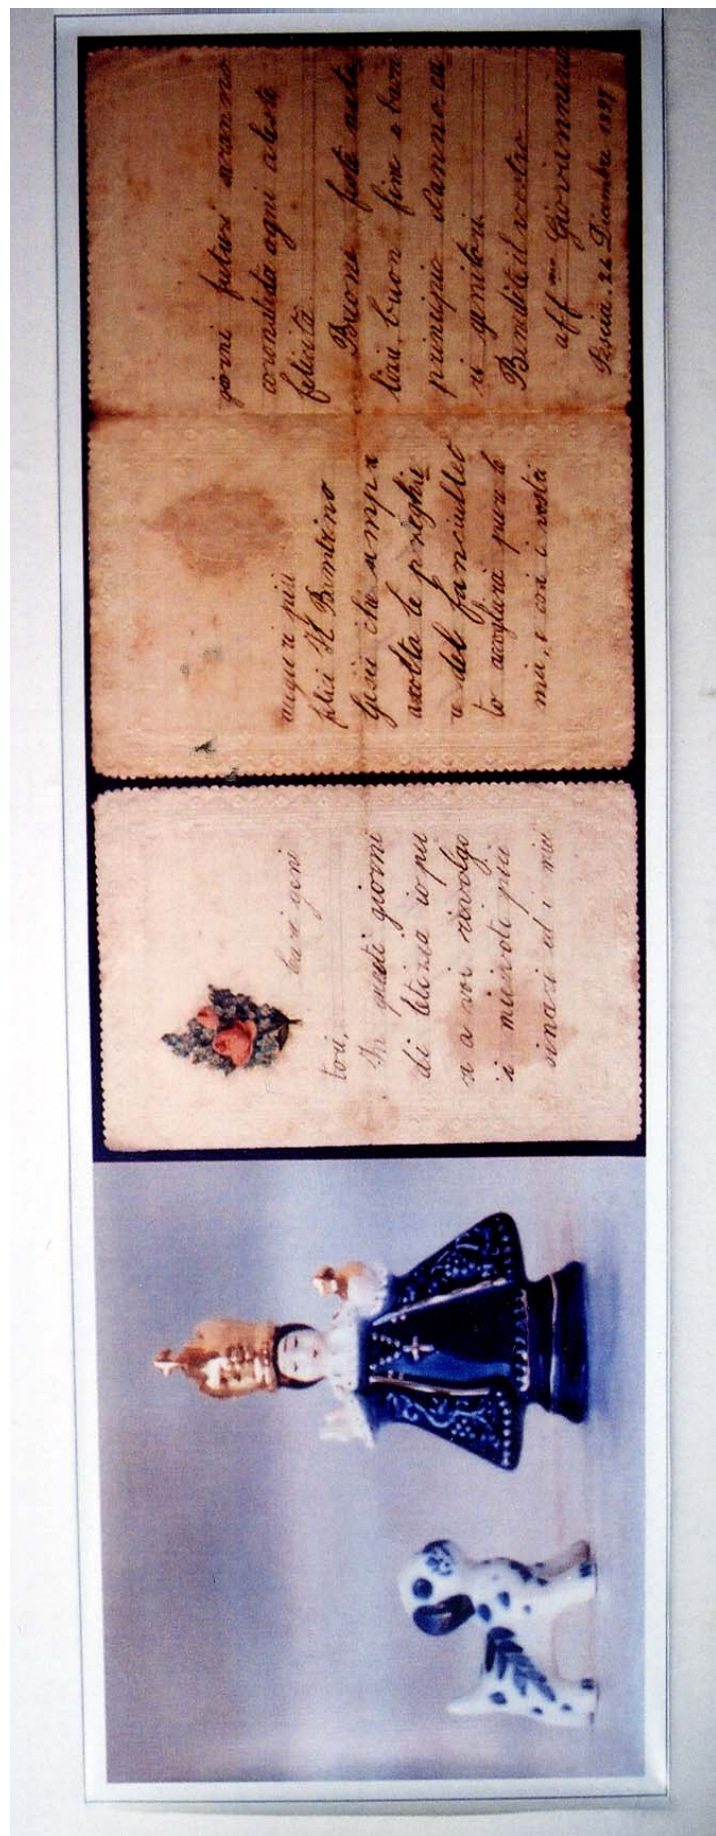 Cari geni
tori,
In questi giorni
di letizia io pu
re a voi rivolgo
i miei voti più
sinceri ed i miei
auguri più
plici Il Bambino
Gesù che sempre
ascolta le preghie
re del fanciullet
to accoglierà pure le
mie, e così i vostri
giorni futuri saranno
coronati da ogni celeste
felicità.
Buone feste nata
lizie, buon fine e buon
principio d'anno ca
ri genitori.
Benedite il vostro
aff.mo Giovannino
Pescia, 24 Dicembre 1897